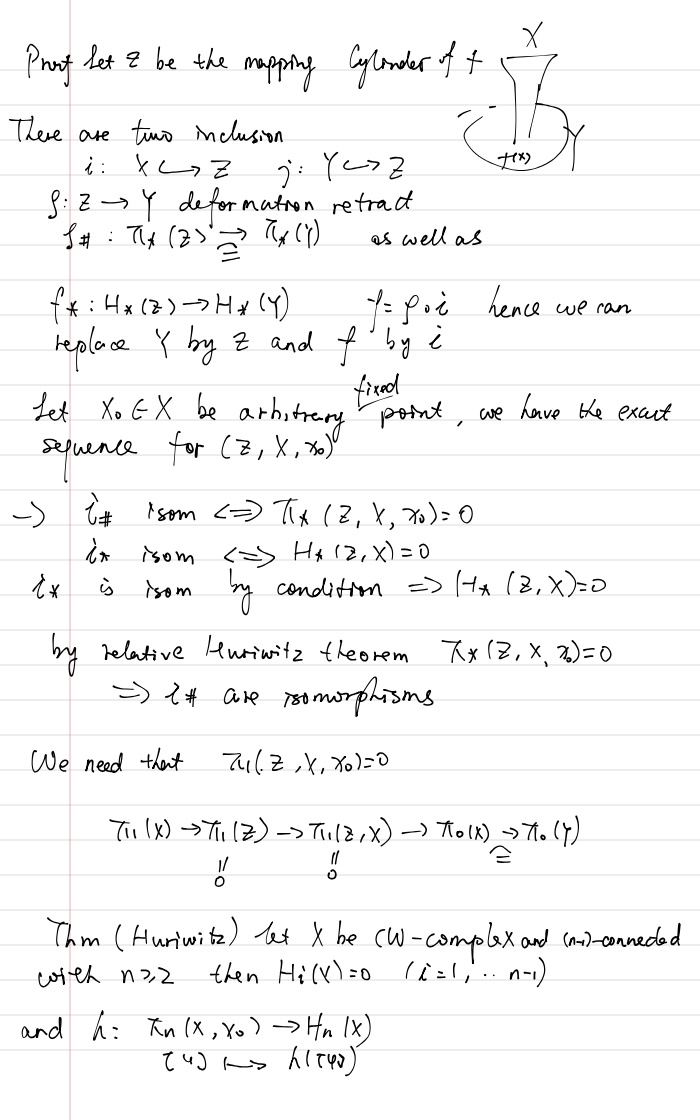 Proof Let Z be the mapping Cylinder of f
X
There are two inclusion
i: X ↪ Z j: Y ↪ Z
f(x)
Y
ρ: Z → Y deformation retract
ρ# : π* (Z) →≅ π* (Y) as well as
f* : H* (Z) → H* (Y) f = ρ∘i hence we can
replace Y by Z and f by i
fixed
Let x₀ ∈ X be arbitrary point, we have the exact
sequence for (Z, X, x₀)
→ i# isom <=> π* (Z, X, x₀) = 0
i* isom <=> H* (Z, X) = 0
i* is isom by condition => H* (Z, X) = 0
by relative Huriwitz theorem π* (Z, X, x₀) = 0
=> i# are isomorphisms
We need that π₁(Z, X, x₀) = 0
π₁(X) → π₁(Z) → π₁(Z, X) → π₀(X) →≅ π₀(Y)
= 0 = 0
Thm (Huriwitz) let X be CW-complex and (n-1)-connected
with n≥2 then Hi(X) = 0 (i=1, .. n-1)
and h: πn (X, x₀) → Hn (X)
[φ] ↦ h([φ])